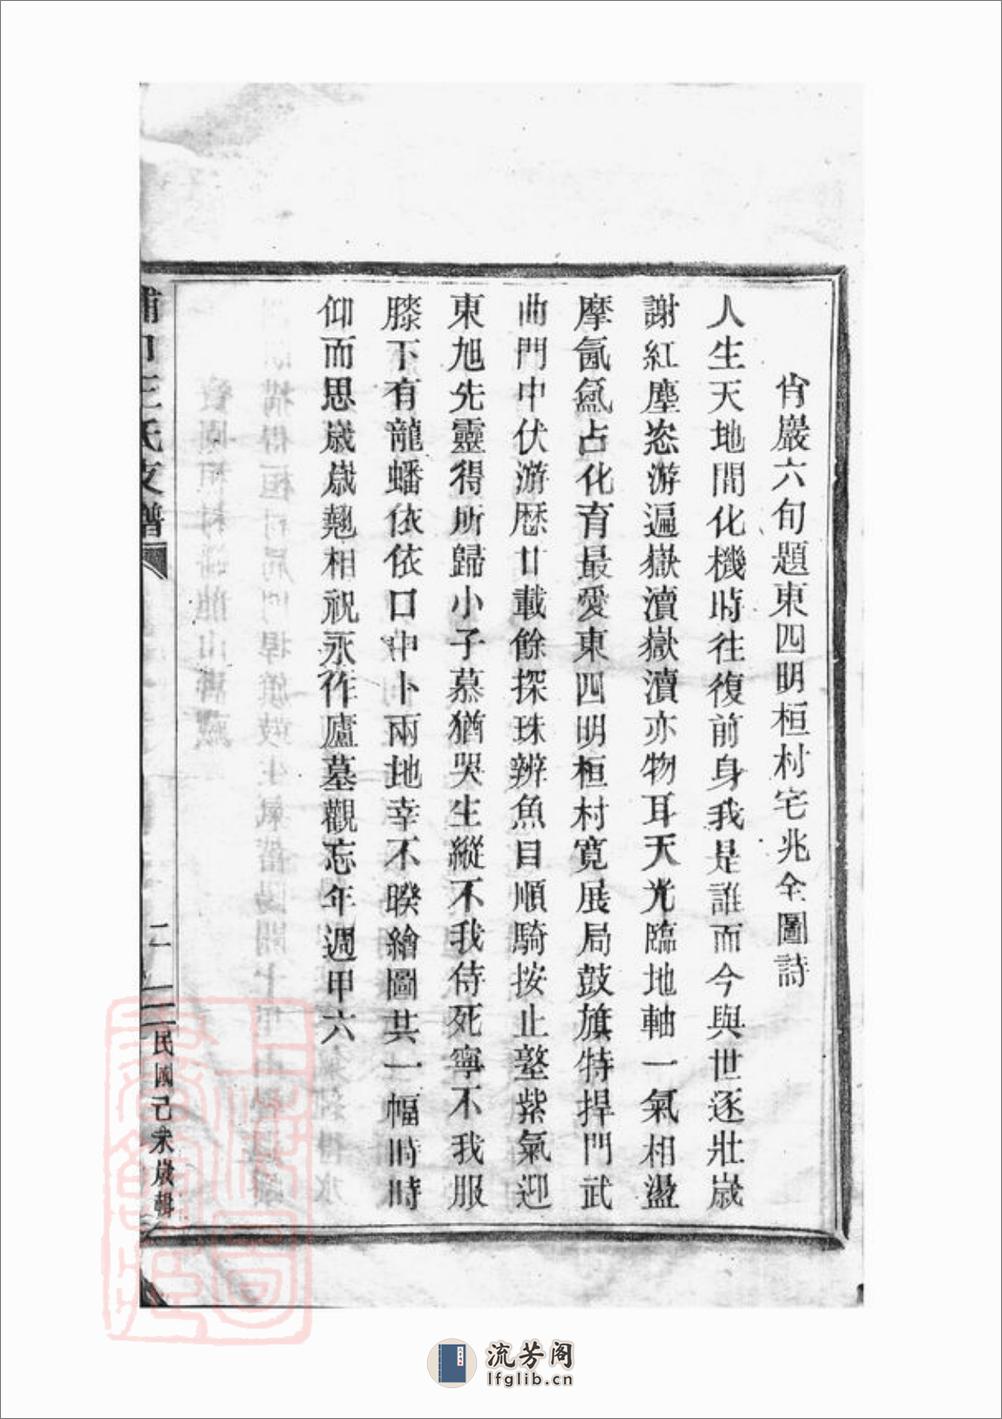 肖巖六旬題東四明桓村宅兆全圖詩
人生天地間化機時往復前身我是誰而今與世逐壯歲
謝紅塵恣游遍嶽瀆嶽瀆亦物耳天光臨地軸一氣相盪
摩氤氳占化育最愛東四明桓村寬展局鼓旗特捍門武
曲門中伏游歷廿載餘探珠辨魚目順騎按止壑紫氣迎
東旭先靈得所歸小子慕猶哭生縱不我侍死寧不我服
膝下有龍蟠依依口中卜兩地幸不暌繪圖共一幅時時
仰而思歲歲翹相祝永作廬墓觀忘年週甲六
王氏支譜
二
民國己未歲輯
流芳阁
lfglib.cn